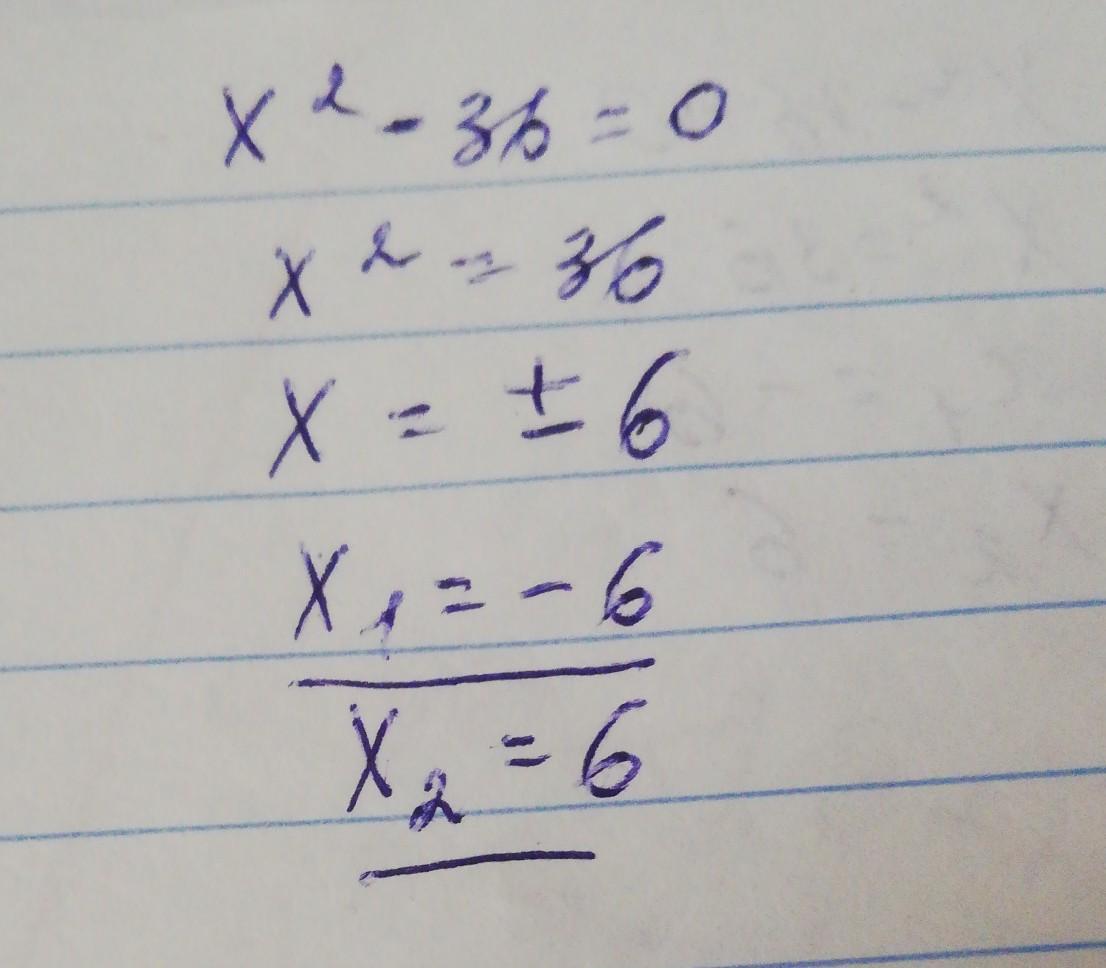 x² - 36 = 0
x² = 36
x = ± 6
x₁ = - 6
x₂ = 6